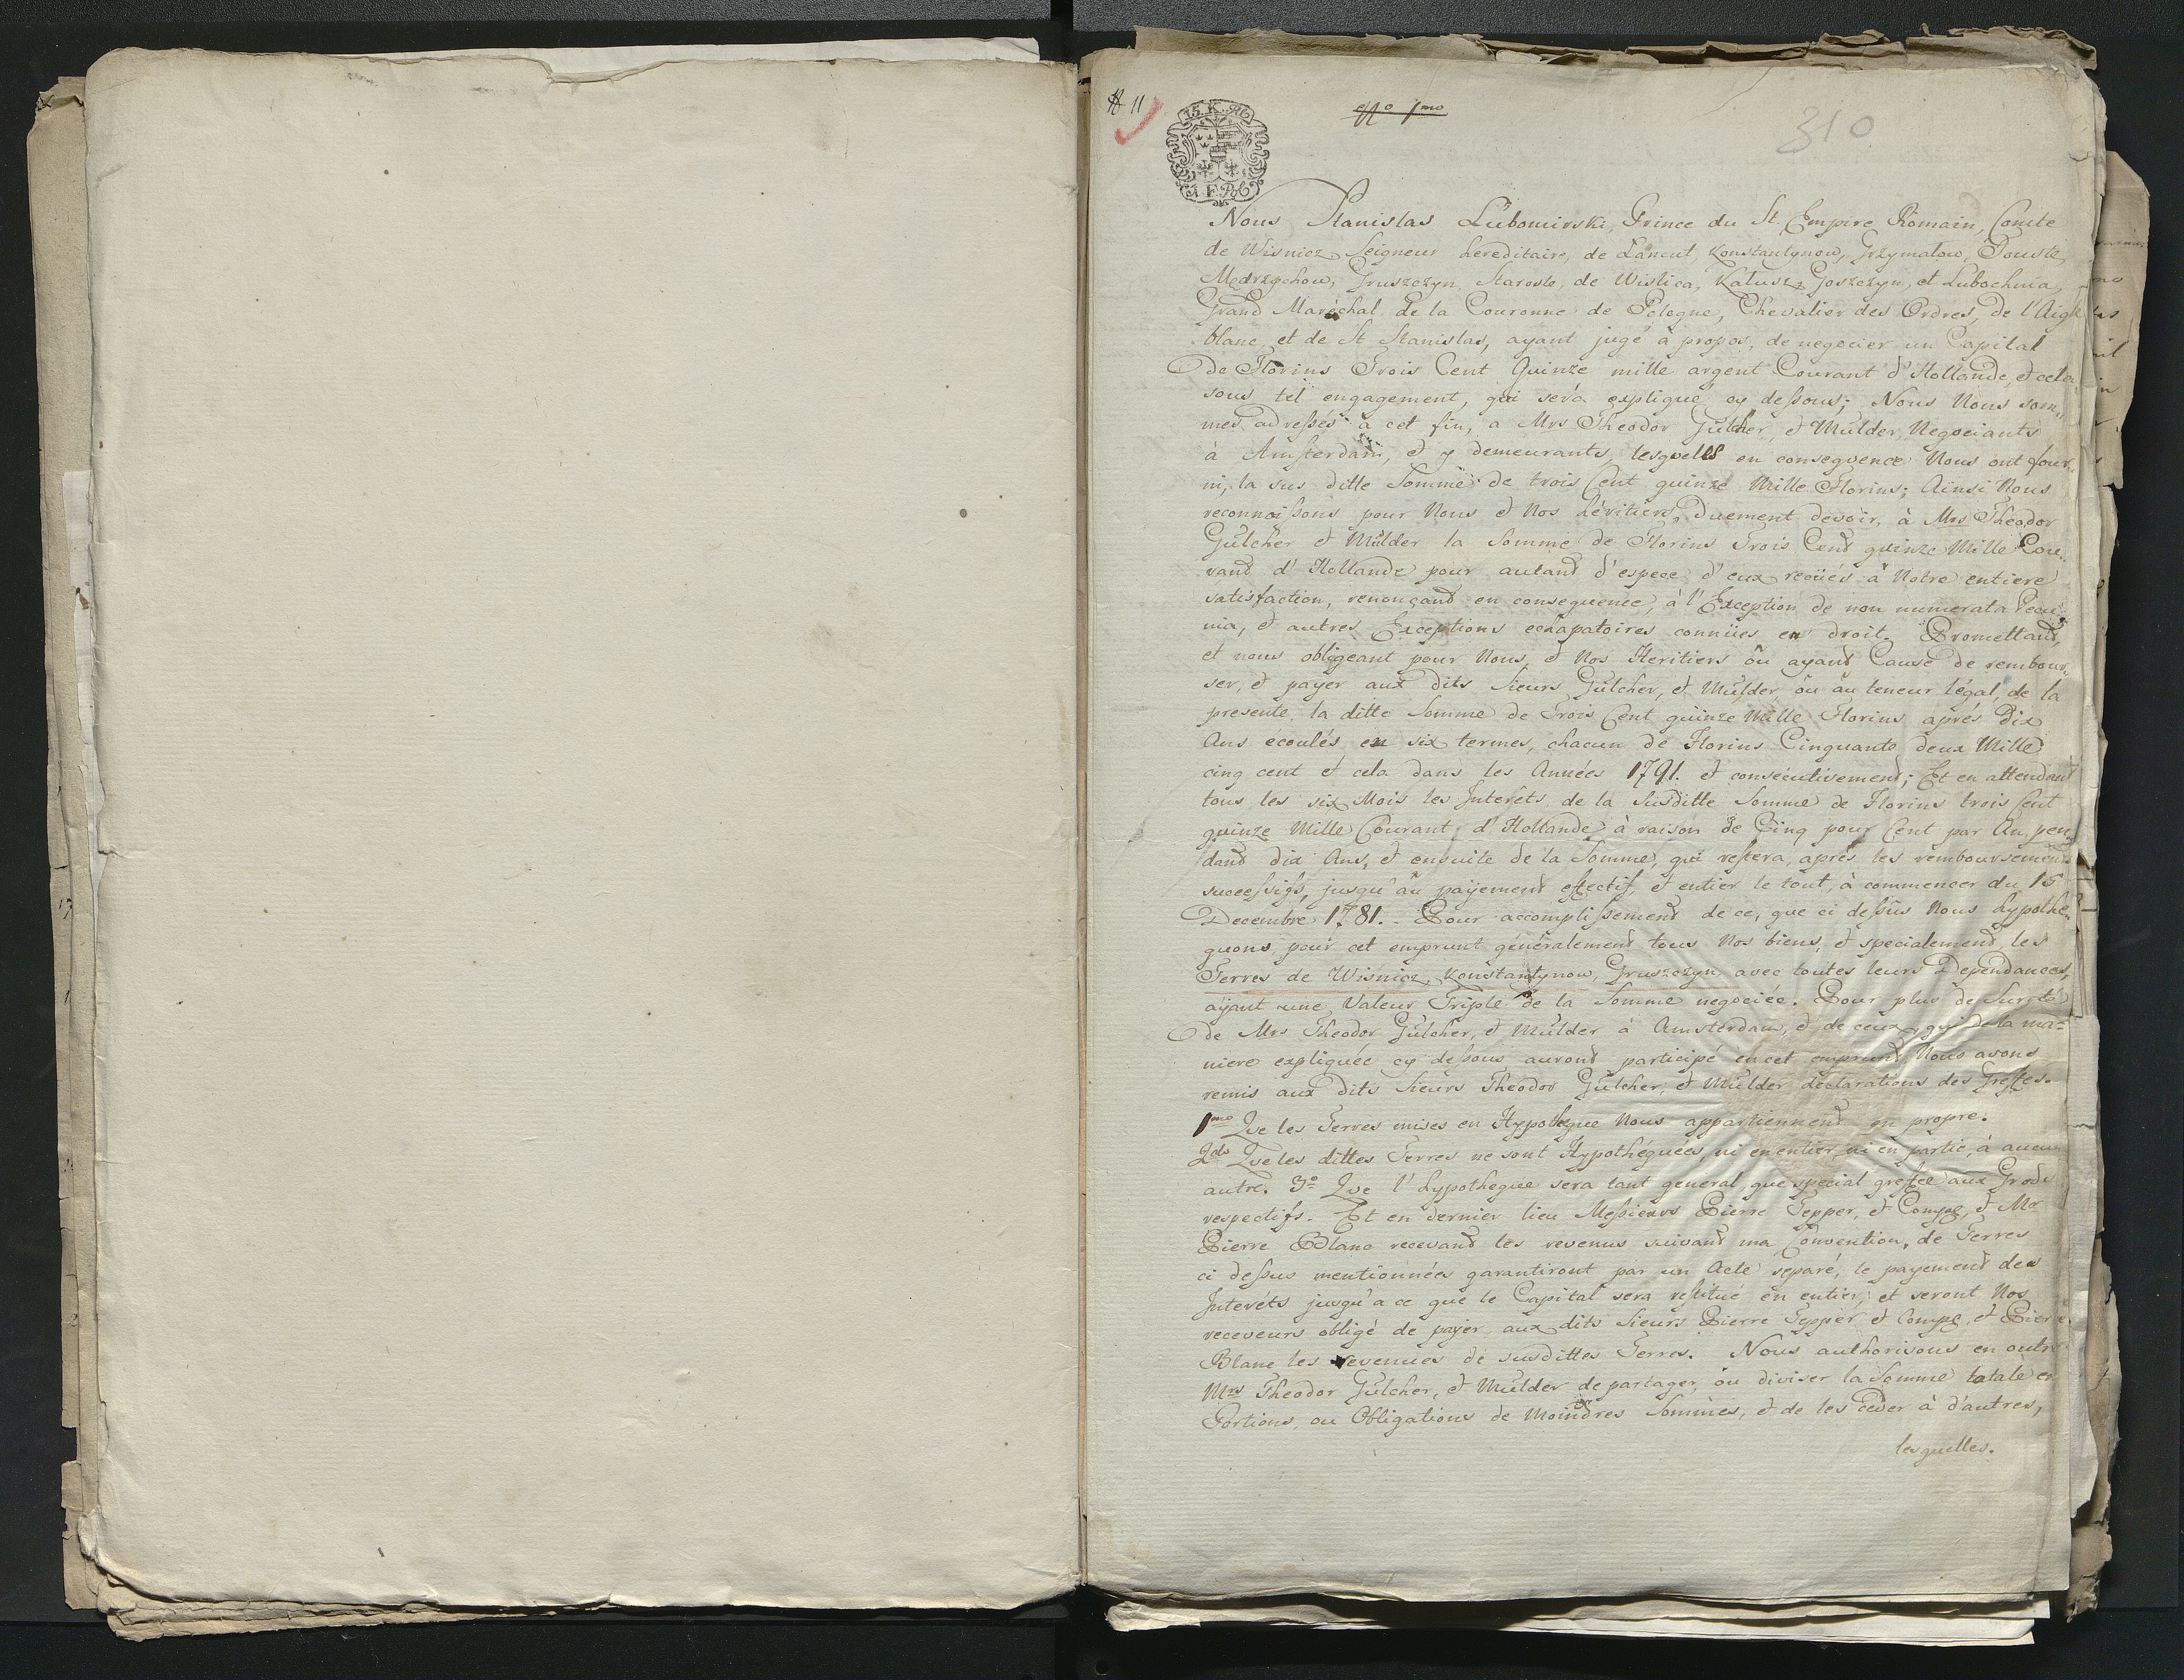 11
No 1mo
310
15. K. R
1 F. R
Nous Stanislas Lubomirski, Prince du St Empire Romain, Comte
de Wisnicz Seigneur hereditaire, de Lancut, Konstantynow, Grzymalow, Touste,
Mędrzychow, Gruszczyn, Staroste, de Wislica, Kalusz, Goszczyn, et Lubochnia,
Grand Maréchal de la Couronne de Pologne, Chevalier des Ordres, de l'Aigle
blanc et de St Stanislas, ayant jugé à propos, de negocier un Capital
de Florins Trois Cent Quinze mille argent Courant d'Hollande, et cela
sous tel engagement, qui sera expliqué cy dessous; Nous Nous som„
mes adressés à cet fin, a Mrs Theodor Gülcher, et Mülder, Negociants
à Amsterdam, et y demeurants, lesquells en consequence Nous ont four„
ni, la sus ditte Somme de trois Cent quinze Mille Florins; Ainsi Nous
reconnoissons pour Nous et Nos héritiers, Duement devoir, à Mrs Theodor
Gülcher et Mülder la Somme de Florins Trois Cent quinze Mille Cou„
rant d'Hollande pour autant d'espece d'eux reçues à Notre entiere
satisfaction, renonçant en consequence, à l'Exception de non numerata Pecu„
nia, et autres Exceptions echapatoires connües en droit. Promettant,
et nous obligeant pour Nous, et Nos Heritiers ou ayant Cause de rembour„
ser, et payer aux dits Sieurs Gülcher, et Mülder ou au teneur légal, de la
presente la ditte Somme de Trois Cent quinze Mille Florins aprés Dix
Ans écoulés en six termes, chacun de Florins Cinquante deux Mille
cinq cent et cela dans les Années 1791. et consécutivement; Et en attendant
tous les six Mois les Interets de la Susditte Somme de Florins trois Cent
quinze Mille Courant d'Hollande à raison de Cinq pour Cent par An, pen„
dant dix Ans, et ensuite de la Somme, qui restera, aprés les remboursements
successifs, jusqu'au payement effectif, et entier le tout, à commencer du 15
Decembre 1781. Pour accomplissement de ce, que ci dessus Nous hypothe„
quons pour cet emprunt généralement tous Nos biens, et specialement les
Terres de Wisnicz, Konstantynow, Gruszczyn avec toutes leurs Dependances,
ayant une Valeur Triple de la Somme negociée. Pour plus de Sureté
de Mrs Theodor Gülcher, et Mülder à Amsterdam, et de ceux, qui de la ma=
niere expliquée cy dessous auront participé en cet emprunt Nous avons
remis aux dits Sieurs Theodor Gülcher, et Mülder declarations des Greffes.
1mo Que les Terres mises en Hypotheque Nous appartiennent en propre.
2do Que les dittes Terres ne sont Hypothéquées, ni en entier, ni en partie, à aucun
autre. 3o Que l'hypotheque sera tant general, que special greffée aux Grods
respectifs. Et en dernier lieu Messieurs Pierre Tepper, et Compe, et Mr
Pierre Blanc recevant les revenus suivant ma Convention, de Terres
ci dessus mentionnées garantiront par un Acte separé, le payement des
Interéts jusqu'a ce que le Capital sera restitué en entier, et seront Nos
receveurs obligé de payer aux dits Sieurs Pierre Tepper et Compe, et Pierre
Blanc les revenues de susdittes Terres. Nous authorisons en outre
Mrs Theodor Gülcher, et Mülder de partager, ou diviser la Somme totale en
Portions, ou Obligations de Moindres Sommes, et de les céder à d'autres,
lesquelles.